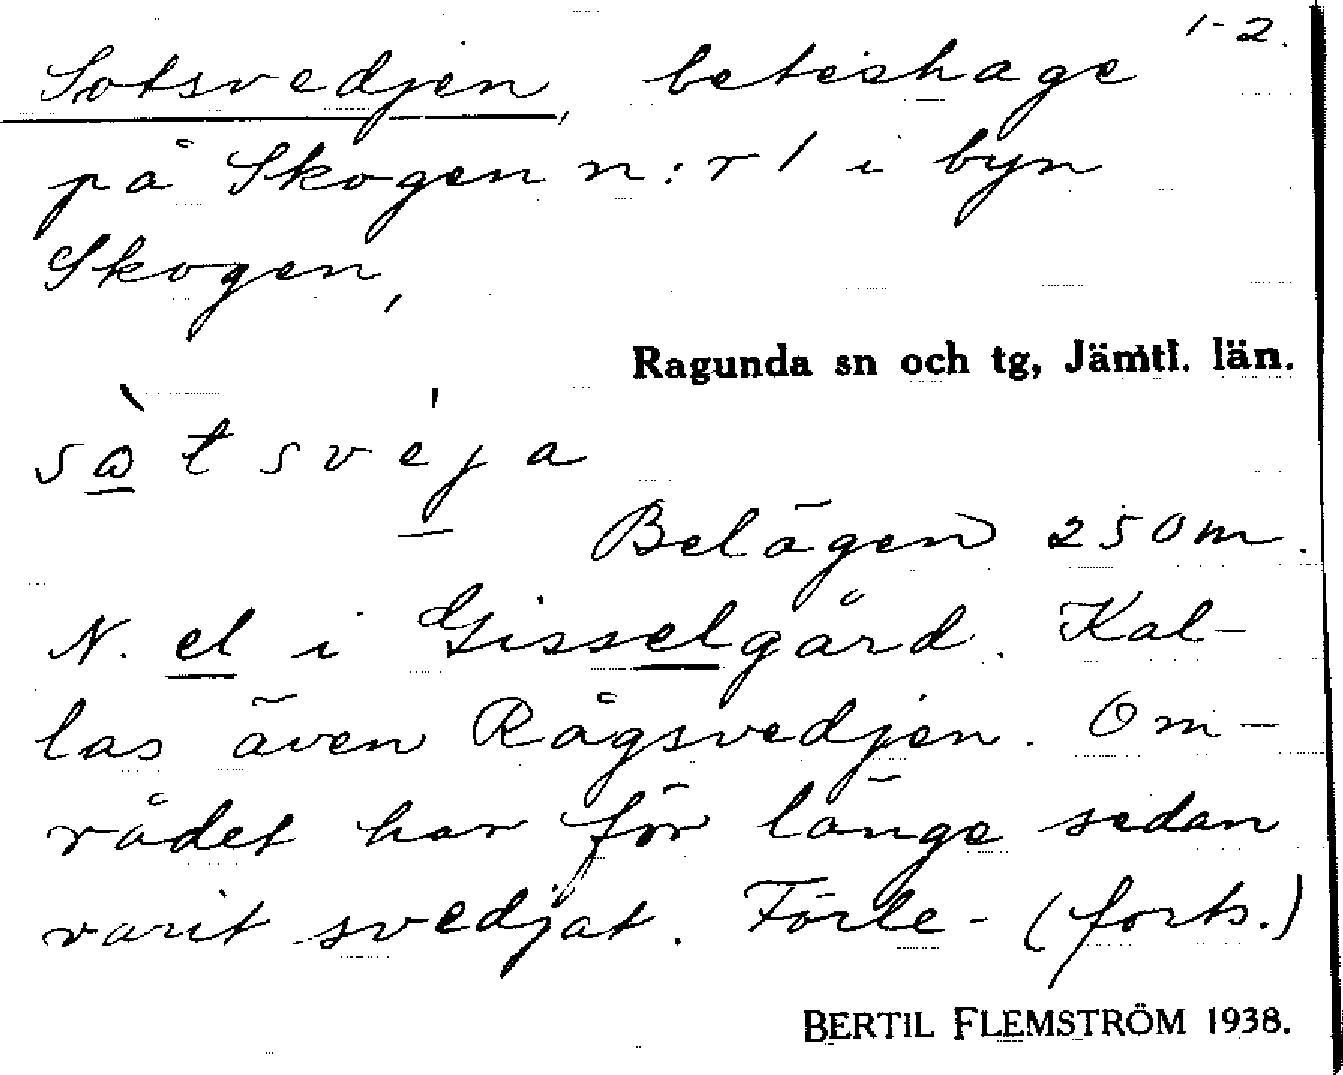 1-2.
Sotsvedjen, beteshage
på Skogen n:r 1 i byn
Skogen,
Ragunda sn och tg, Jämtl. län.
sò̱tsvè̱ja
Belägen 250 m.
N. el i Gisselgård. Kal-
las även Rågsvedjen. Om-
rådet har för länge sedan
varit svedjat. Förle- (forts.)
BERTIL FLEMSTRÖM 1938.